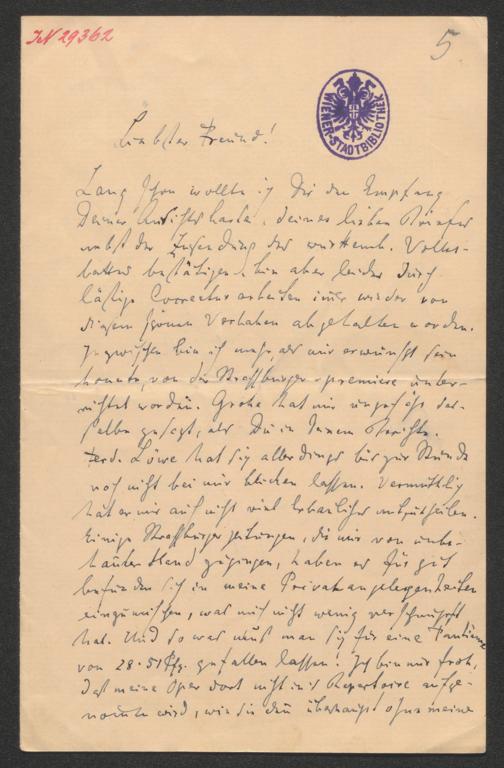 IN 29362
5
WIENER-STADTBIBLIOTHEK
Liebster Freund!
Lang schon wollte ich Dir den Empfang
Deiner Ansichtskarte, deines lieben Briefes
nebst der Zusendung der württemb. Volks-
blattes bestätigen, bin aber leider durch
lästige Correcturarbeiten immer wieder von
diesem Vorhaben abgehalten worden.
Inzwischen bin ich mehr, als mir erwünscht sein
konnte, von der Straßburger-premiere unter-
richtet worden. Grohe hat mir ungefähr das-
selbe gesagt, als Du in Deinem Berichte.
Ferd. Löwe hat sich allerdings bis zur Stunde
noch nicht bei mir blicken lassen. Vermuthlich
hat er mir auch nicht viel Erbauliches mitzutheilen.
Einige Straßburger Zeitungen, die mir von unbe-
kannter Hand zugingen, haben es für gut
befunden sich in meine Privatangelegenheiten
einzumischen, was mich nicht wenig verschnupft
hat. Und so was muß man sich für eine Tantieme
von 28·51 Pfg. gefallen lassen! Ich bin nur froh,
daß meine Oper dort nicht in's Repertoire aufge-
nommen wird, wie sie denn überhaupt ohne meine